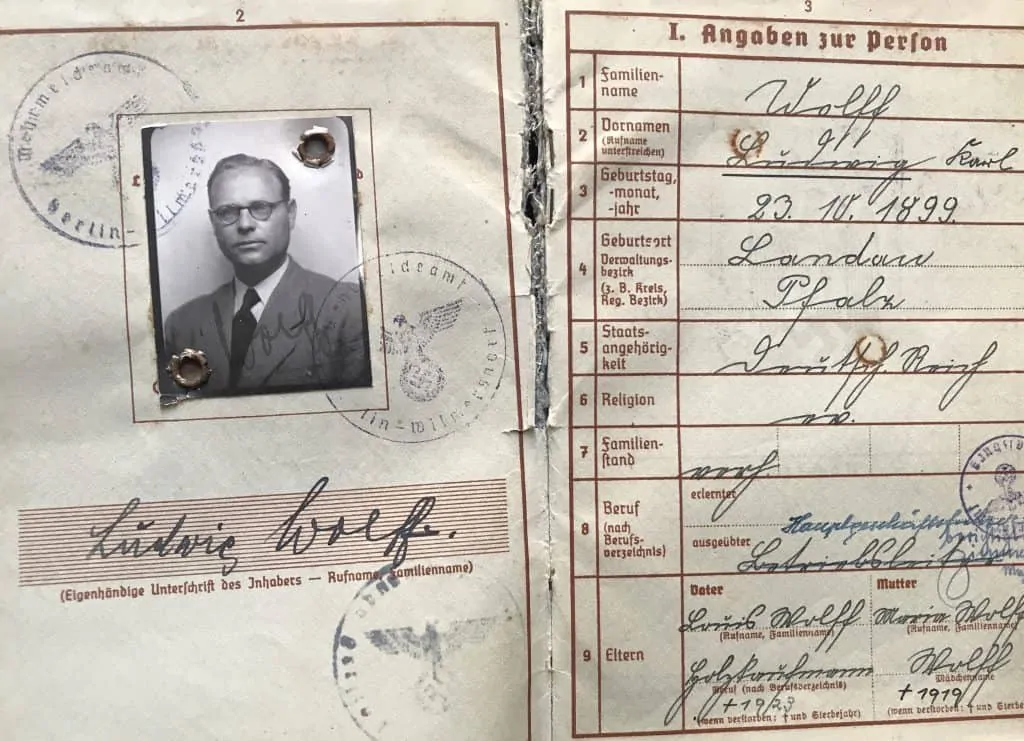 2
Wehrmeldeamt
Berlin-Wilmersdorf
Wolff
Ludwig Wolff.
(Eigenhändige Unterschrift des Inhabers — Rufname, Familienname)
3
I. Angaben zur Person
1 Familien-
name
Wolff
2 Vornamen
(Rufname
unterstreichen)
Ludwig Karl
3 Geburtstag,
-monat,
-jahr
23. 10. 1899.
4 Geburtsort
Verwaltungs-
bezirk
(z. B. Kreis,
Reg. Bezirk)
Landau
Pfalz
5 Staats-
angehörig-
keit
Deutsch. Reich
6 Religion
ev.
7 Familien-
stand
verh
8 Beruf
(nach
Berufs-
verzeichnis)
erlernter
ausgeübter
Betriebsleiter
9 Eltern
Vater
Mutter
Louis Wolff
Maria Wolff
(Rufname, Familienname)
(Rufname, Familienname)
Holzkaufmann
Wolff
Beruf (nach Berufsverzeichnis)
Mädchenname
† 1923
† 1919
(wenn verstorben: † und Sterbejahr)
(wenn verstorben: † und Sterbe